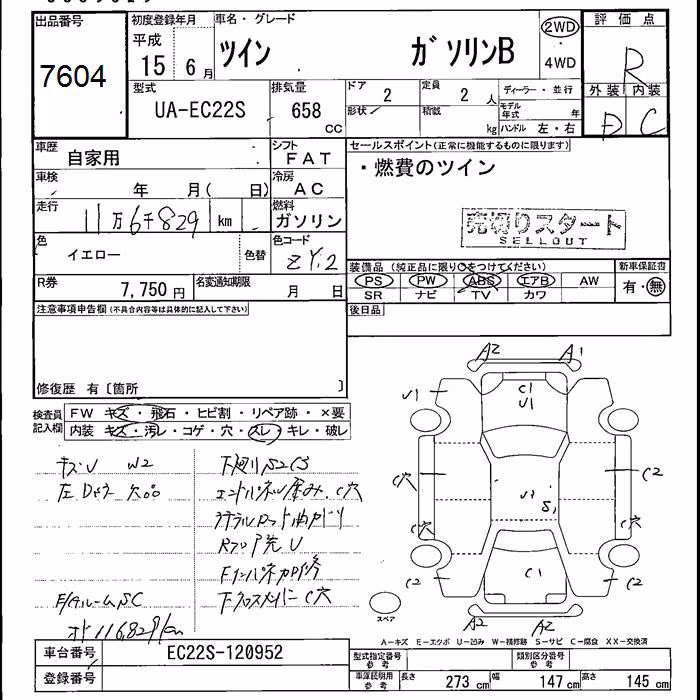 出品番号
7604
初度登録年月
平成
15 6月
車名・グレード
ツイン ガソリンB
2WD
・
4WD
評価点
R
外装 内装
D C
型式
UA-EC22S
排気量
658
cc
ドア
2
形状
定員
2 人
積載
kg
ディーラー・並行
モデル
年式 年
ハンドル 左・右
車歴
自家用
シフト
FAT
車検
年 月( 日)
冷房
AC
走行
11万6千829 km
燃料
ガソリン
色
イエロー
色替
色コード
ZY2
R券
7,750 円
名変通知期限
月 日
セールスポイント(正常に機能するものに限ります)
・燃費のツイン
売切りスタート
SELLOUT
装備品(純正品に限り○をつけてください)
PS PW ABS エアB AW
SR ナビ TV カワ
新車保証書
有・無
後日品
注意事項申告欄(不具合内容等は具体的に記入して下さい)
修復歴 有〔箇所 〕
検査員
記入欄
FW キズ・飛石・ヒビ割・リペア跡・×要
内装 キズ・汚レ・コゲ・穴・スレ・キレ・破レ
キズU W2
下廻りS2C3
欠品
C穴
F C穴
オド116,829km
A2 A1
U1
C1
U1
C穴
C2
C穴
C穴
S1
C2
C1
C2
A2 A2
スペア
A-キズ E-エクボ U-凹み W-補修跡 S-サビ C-腐食 XX-交換済
車台番号
EC22S-120952
登録番号
型式指定番号
参考
類別区分番号
参考
車庫証明用
参考
長さ 273 cm 幅 147 cm 高さ 145 cm